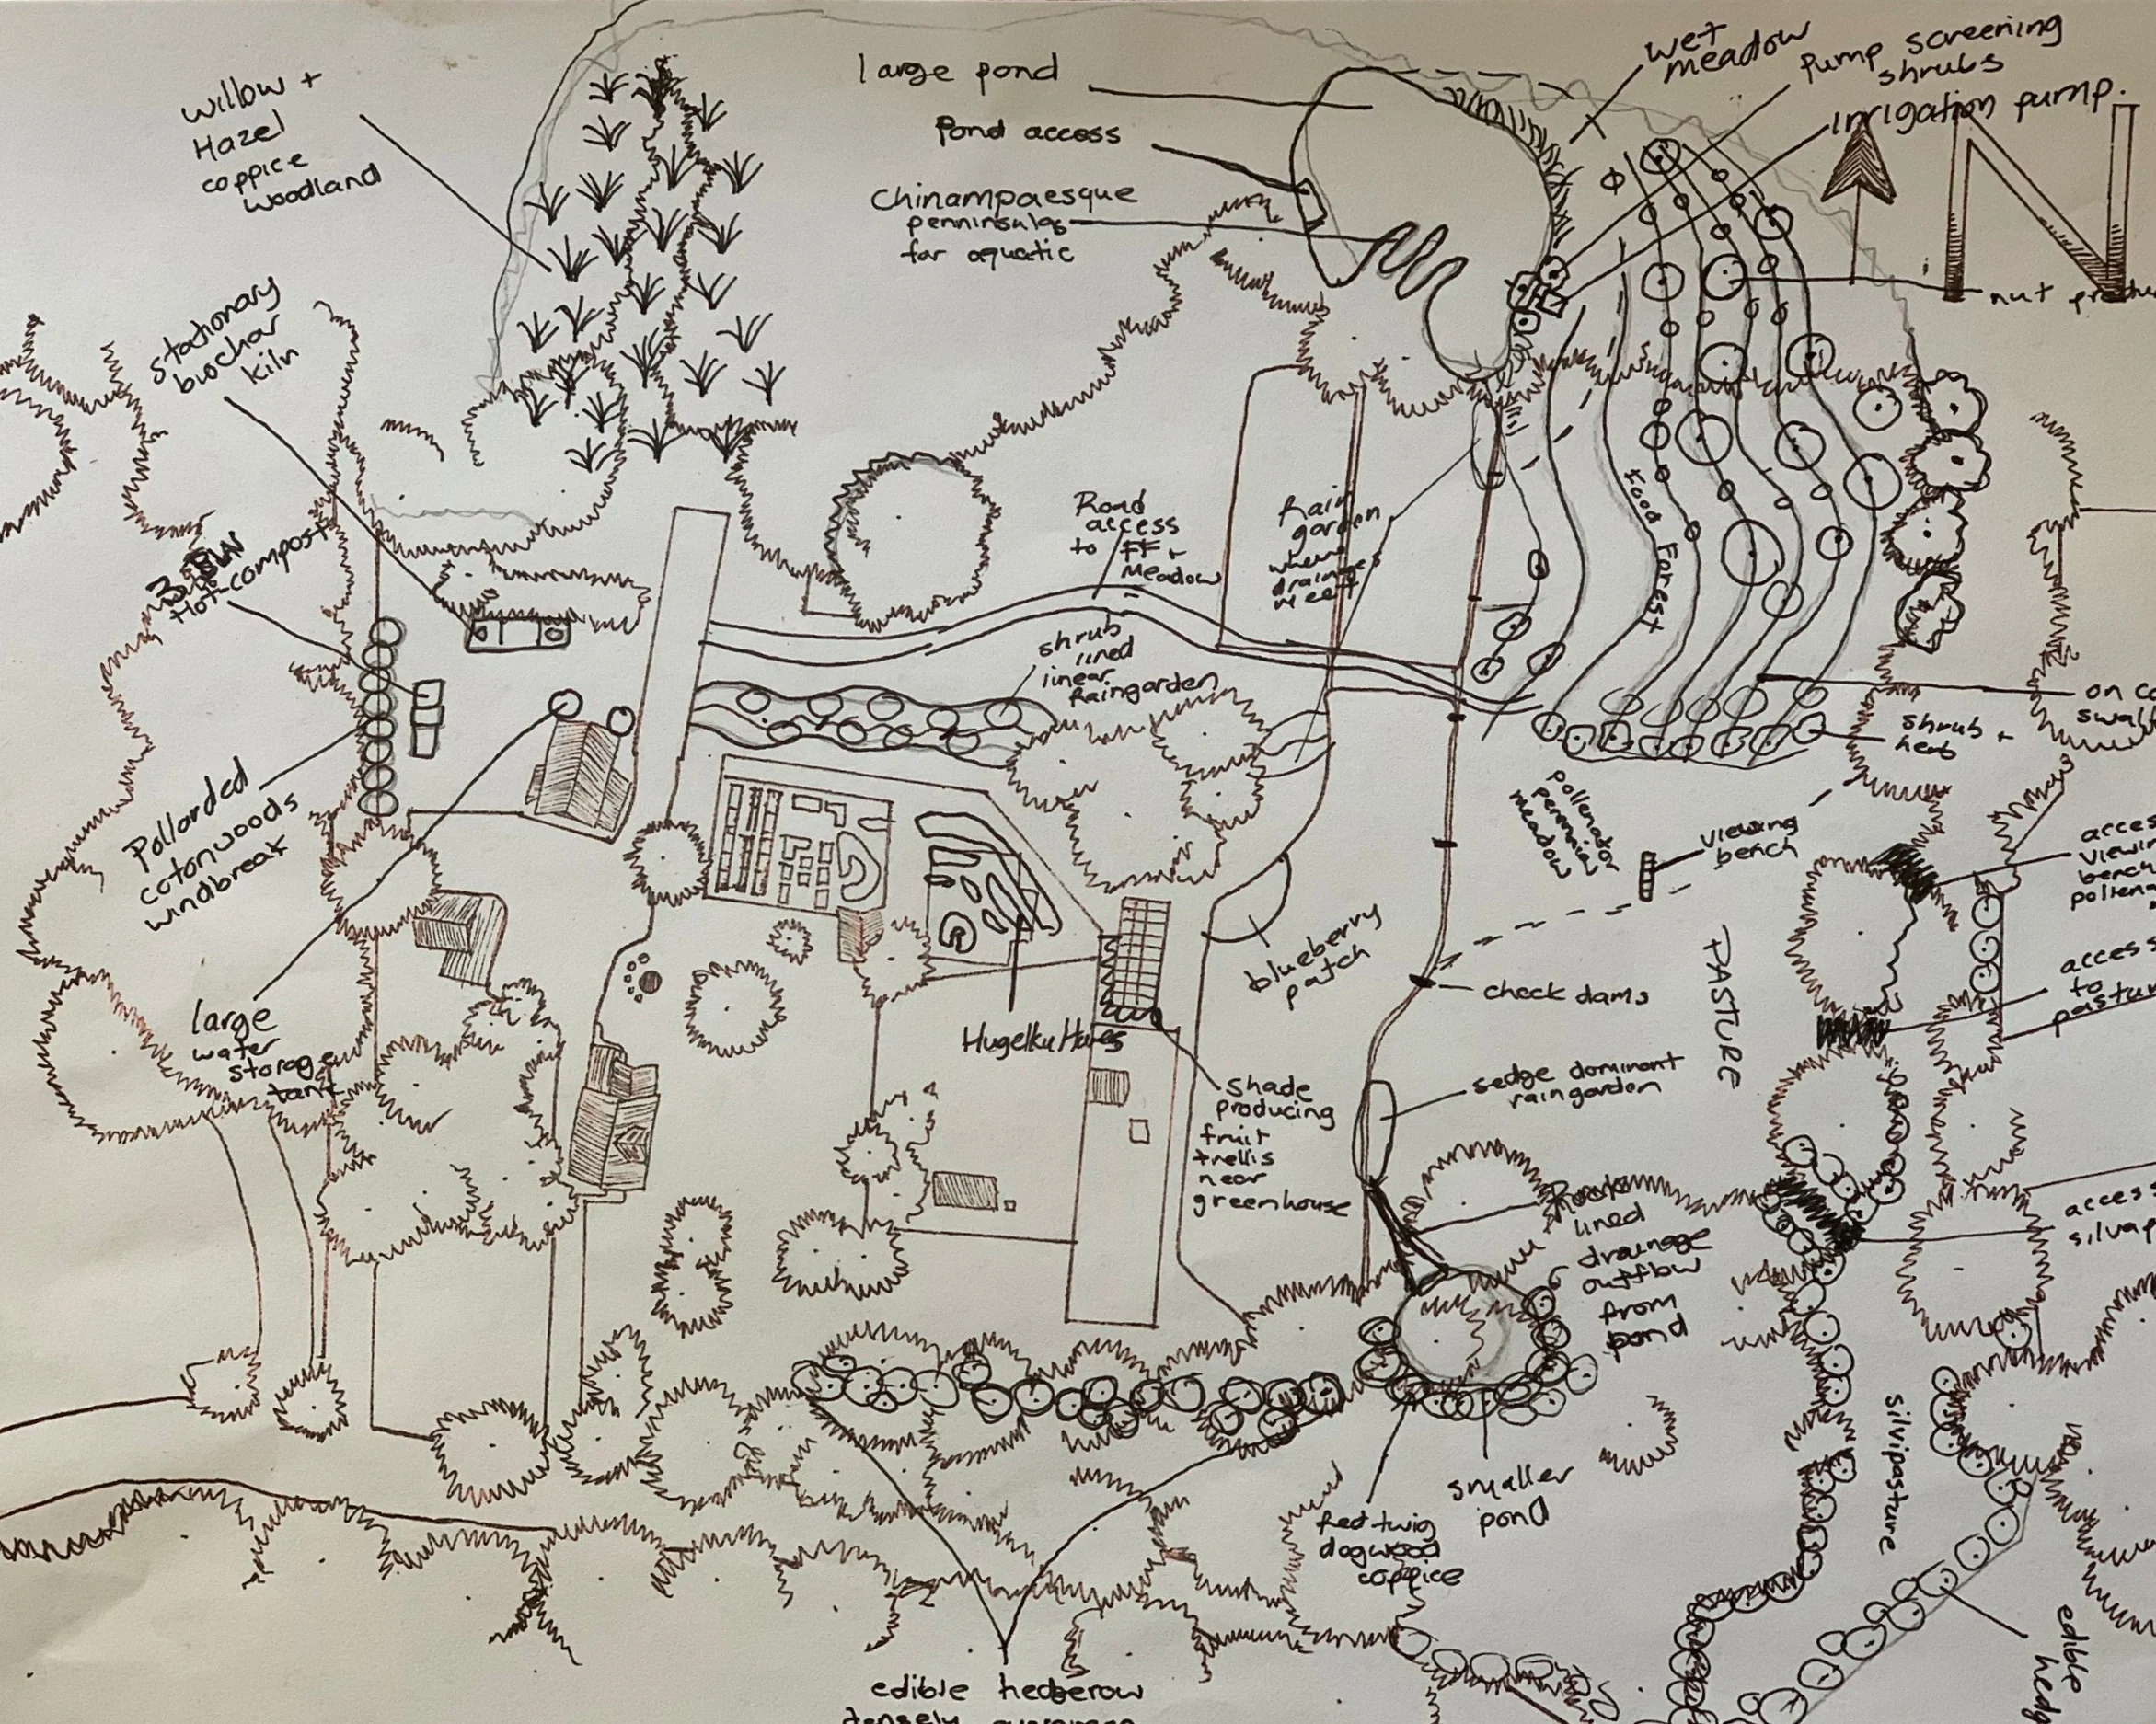 willow +
Hazel
coppice
woodland
large pond
Pond access
Chinampaesque
penninsulas
for aquatic
wet
meadow
pump screening
shrubs
irrigation pump.
N
nut
stationary
biochar
kiln
3. BIN
Hot-compost
Road
access
to FF +
Meadow
Rain
garden
where
drainages
meet
Food Forest
shrub
lined
linear
Raingarden
on
swal
shrub +
herb
Pollarded
cotonwoods
windbreak
pollenator
perennial
meadow
viewing
bench
acces
viewin
bench
pollena
blueberry
patch
PASTURE
access
to
pastur
check dams
large
water
storage
tank
Hugelku
shade
producing
fruit
trellis
near
greenhouse
sedge dominant
raingarden
Rock
lined
drainage
outflow
from
pond
access
silvap
silvipasture
smaller
pond
Red twig
dogwood
coppice
edible hedgerow
edible
hedg